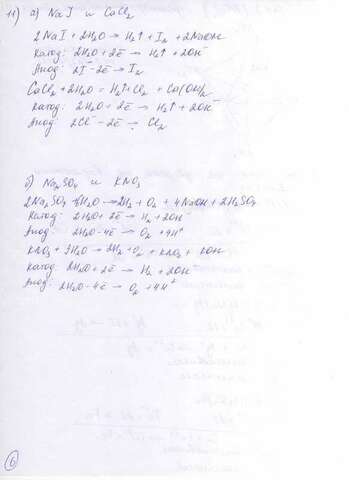 11) а) NaI и CaCl₂
2NaI + 2H₂O → H₂↑ + I₂ + 2NaOH
Катод: 2H₂O + 2ē → H₂↑ + 2OH⁻
Анод: 2I⁻ - 2ē → I₂
CaCl₂ + 2H₂O = H₂↑ + Cl₂ + Ca(OH)₂
Катод: 2H₂O + 2ē → H₂↑ + 2OH⁻
Анод: 2Cl⁻ - 2ē → Cl₂
б) Na₂SO₄ и KNO₃
2Na₂SO₄ 6H₂O → 2H₂ + O₂ + 4NaOH + 2H₂SO₄
Катод: 2H₂O + 2ē → H₂ + 2OH⁻
Анод: 2H₂O - 4ē → O₂ + 4H⁺
KNO₃ + 3H₂O → 2H₂ + O₂ + KNO₃ + KOH
Катод: 2H₂O + 2ē → H₂ + 2OH⁻
Анод: 2H₂O - 4ē → O₂ + 4H⁺
6